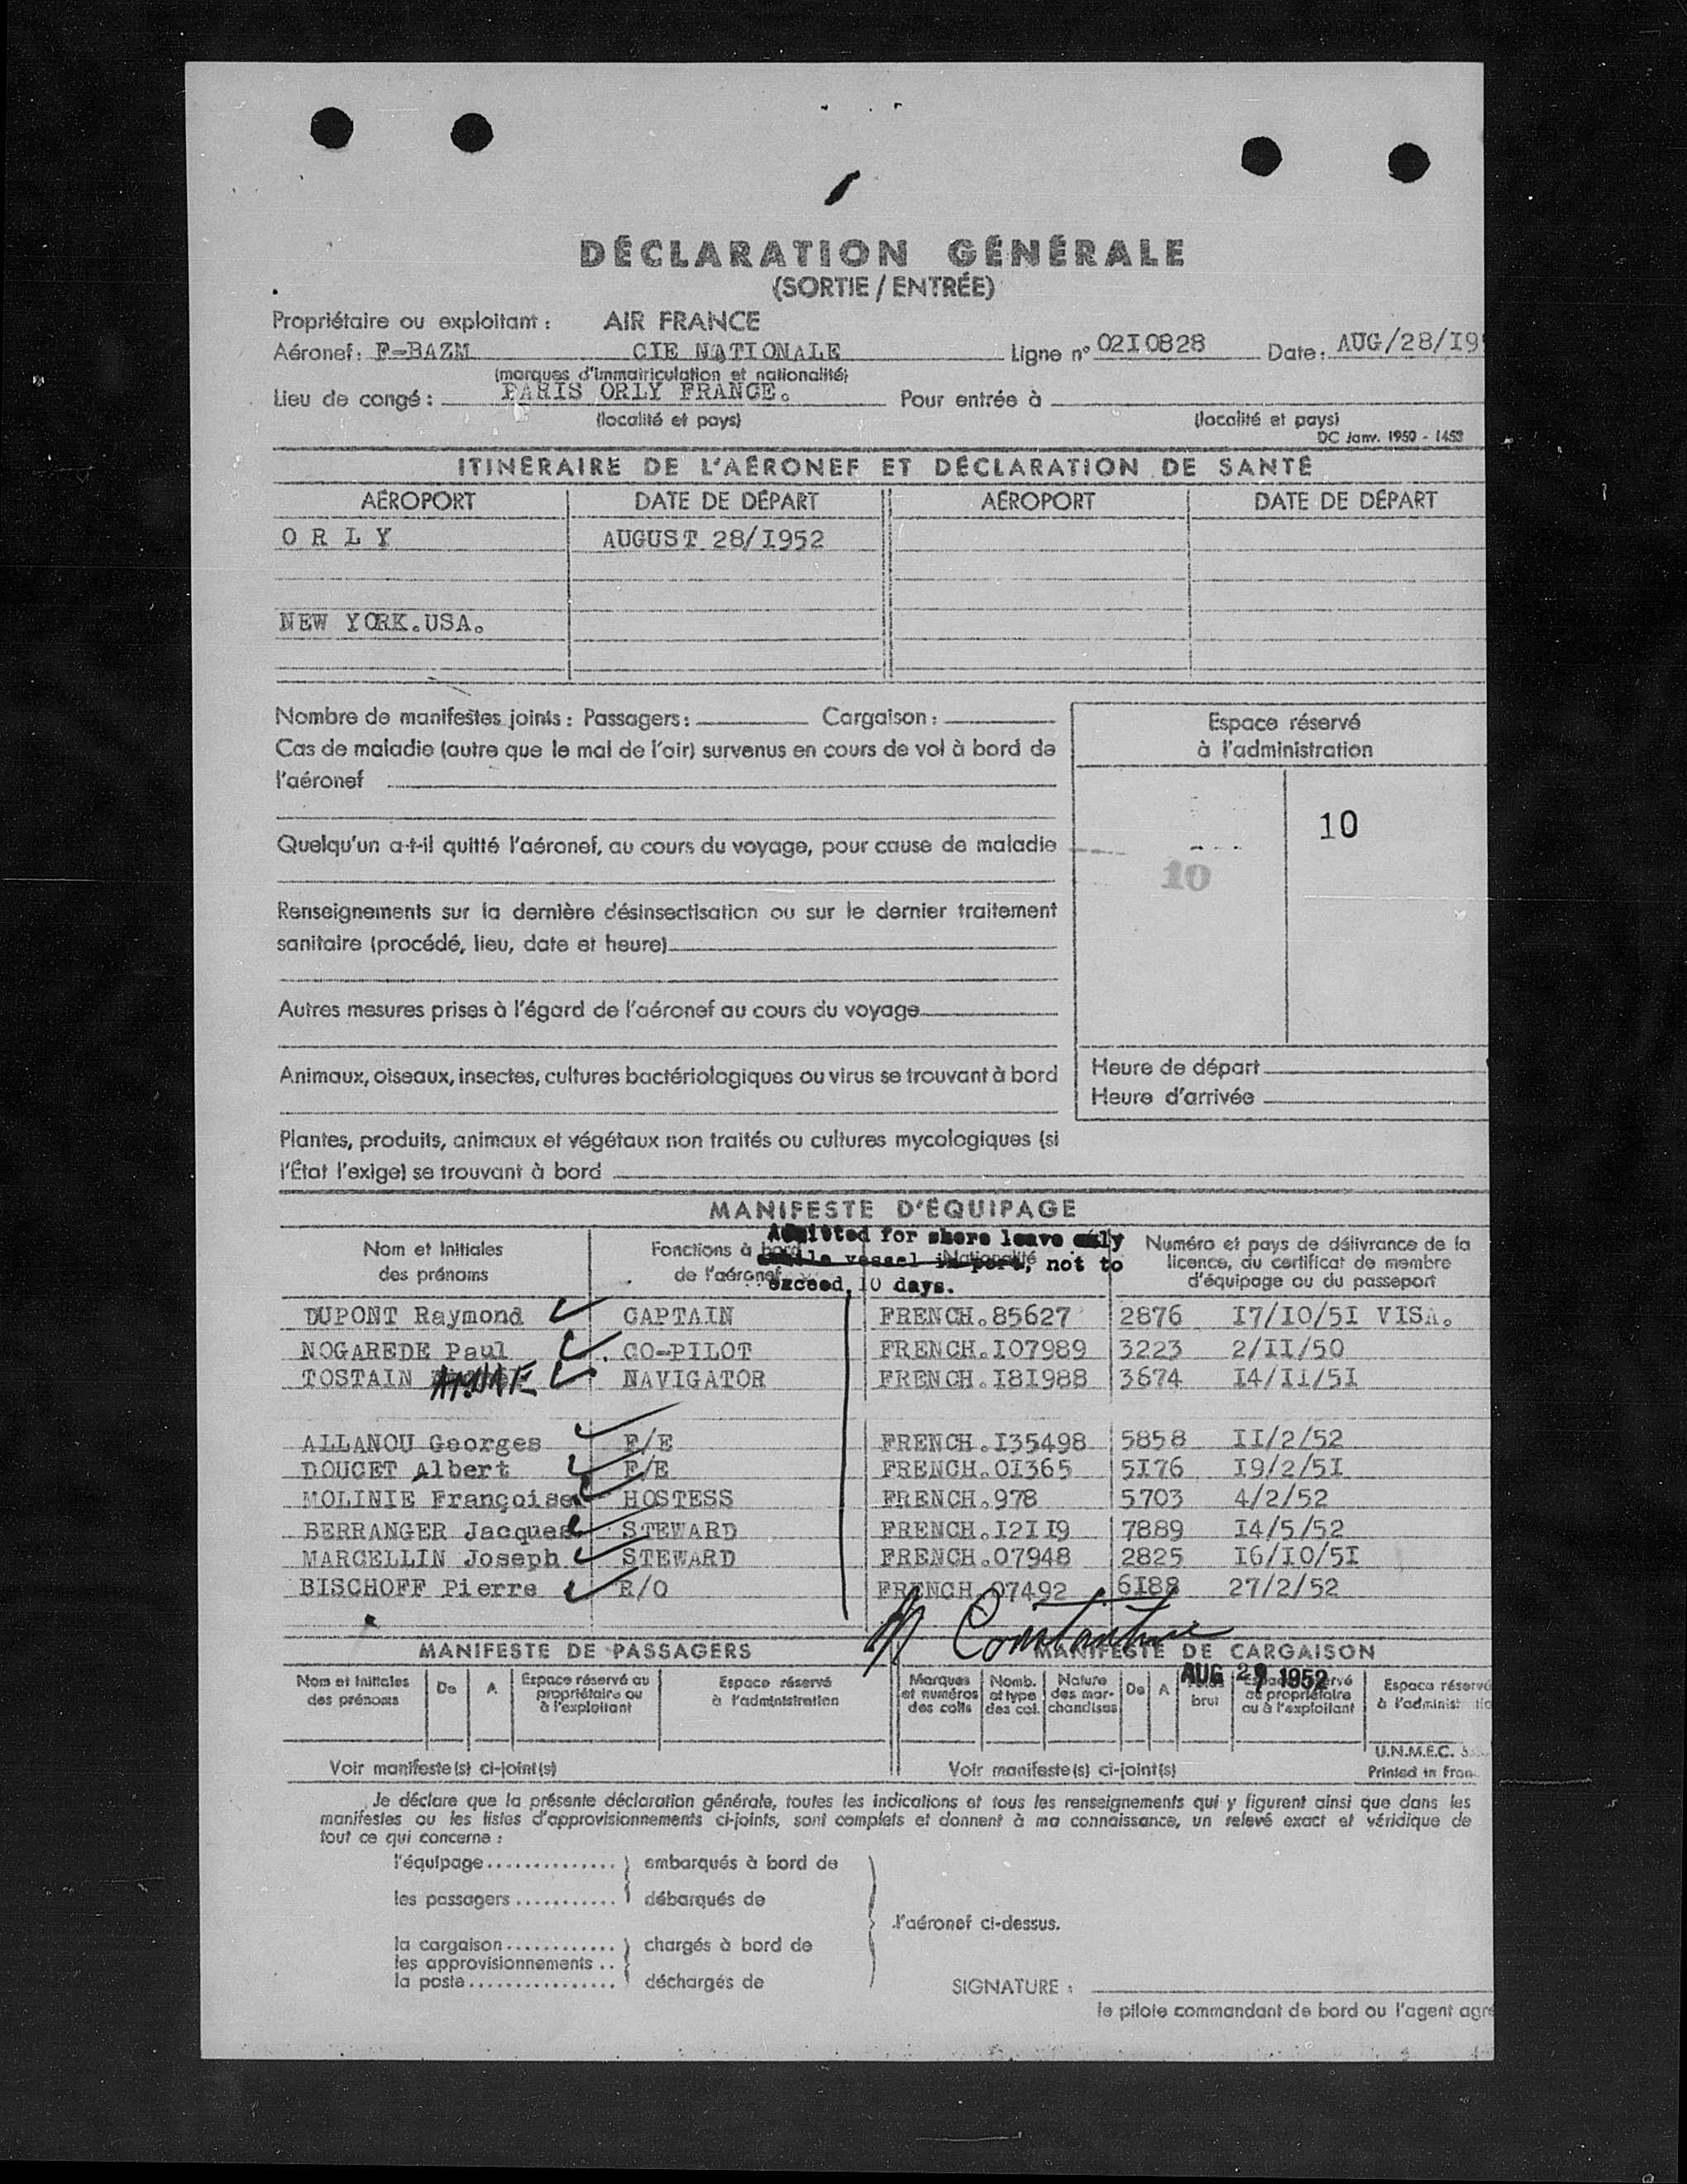 DÉCLARATION GÉNÉRALE
(SORTIE / ENTRÉE)
Propriétaire ou exploitant : AIR FRANCE
Aéronef : F-BAZM CIE NATIONALE Ligne n° 02I0828 Date : AUG/28/I9
(marques d'immatriculation et nationalité)
Lieu de congé : PARIS ORLY FRANCE. Pour entrée à
(localité et pays) (localité et pays)
DC Janv. 1950 - 1453
ITINÉRAIRE DE L'AÉRONEF ET DÉCLARATION DE SANTÉ
AÉROPORT DATE DE DÉPART AÉROPORT DATE DE DÉPART
O R L Y AUGUST 28/I952
NEW YORK.USA.
Nombre de manifestes joints : Passagers : Cargaison :
Espace réservé
à l'administration
Cas de maladie (autre que le mal de l'air) survenus en cours de vol à bord de
l'aéronef
10
Quelqu'un a-t-il quitté l'aéronef, au cours du voyage, pour cause de maladie
10
Renseignements sur la dernière désinsectisation ou sur le dernier traitement
sanitaire (procédé, lieu, date et heure)
Autres mesures prises à l'égard de l'aéronef au cours du voyage
Animaux, oiseaux, insectes, cultures bactériologiques ou virus se trouvant à bord
Heure de départ
Heure d'arrivée
Plantes, produits, animaux et végétaux non traités ou cultures mycologiques (si
l'État l'exige) se trouvant à bord
MANIFESTE D'ÉQUIPAGE
Admitted for shore leave only
while vessel in port, not to
exceed 10 days.
Nom et Initiales des prénoms
Fonctions à bord de l'aéronef
Nationalité
Numéro et pays de délivrance de la
licence, du certificat de membre
d'équipage ou du passeport
DUPONT Raymond CAPTAIN FRENCH.85627 2876 I7/IO/5I VISA.
NOGAREDE Paul CO-PILOT FRENCH.I07989 3223 2/II/50
TOSTAIN NAVIGATOR FRENCH.I8I988 3674 I4/II/5I
ALLANOU Georges F/E FRENCH.I35498 5858 II/2/52
DOUCET Albert F/E FRENCH.OI365 5I76 I9/2/5I
MOLINIE Françoise HOSTESS FRENCH.978 5703 4/2/52
BERRANGER Jacques STEWARD FRENCH.I2II9 7889 I4/5/52
MARCELLIN Joseph STEWARD FRENCH.07948 2825 I6/IO/5I
BISCHOFF Pierre R/O FRENCH 07492 6I88 27/2/52
Constantine
MANIFESTE DE PASSAGERS MANIFESTE DE CARGAISON
AUG 29 1952
Nom et Initiales des prénoms
De
A
Espace réservé au propriétaire ou à l'exploitant
Espace réservé à l'administration
Marques et numéros des colis
Nomb. et type des col.
Nature des mar- chandises
De
A
brut
Espace réservé au propriétaire ou à l'exploitant
Espace réservé à l'administ
U.N.M.E.C.
Voir manifeste(s) ci-joint(s) Voir manifeste(s) ci-joint(s) Printed in Fran
Je déclare que la présente déclaration générale, toutes les indications et tous les renseignements qui y figurent ainsi que dans les
manifestes ou les listes d'approvisionnements ci-joints, sont complets et donnent à ma connaissance, un relevé exact et véridique de
tout ce qui concerne :
l'équipage.............. embarqués à bord de
les passagers ........... débarqués de
l'aéronef ci-dessus.
la cargaison............ chargés à bord de
les approvisionnements ..
la poste................ déchargés de
SIGNATURE :
le pilote commandant de bord ou l'agent agré